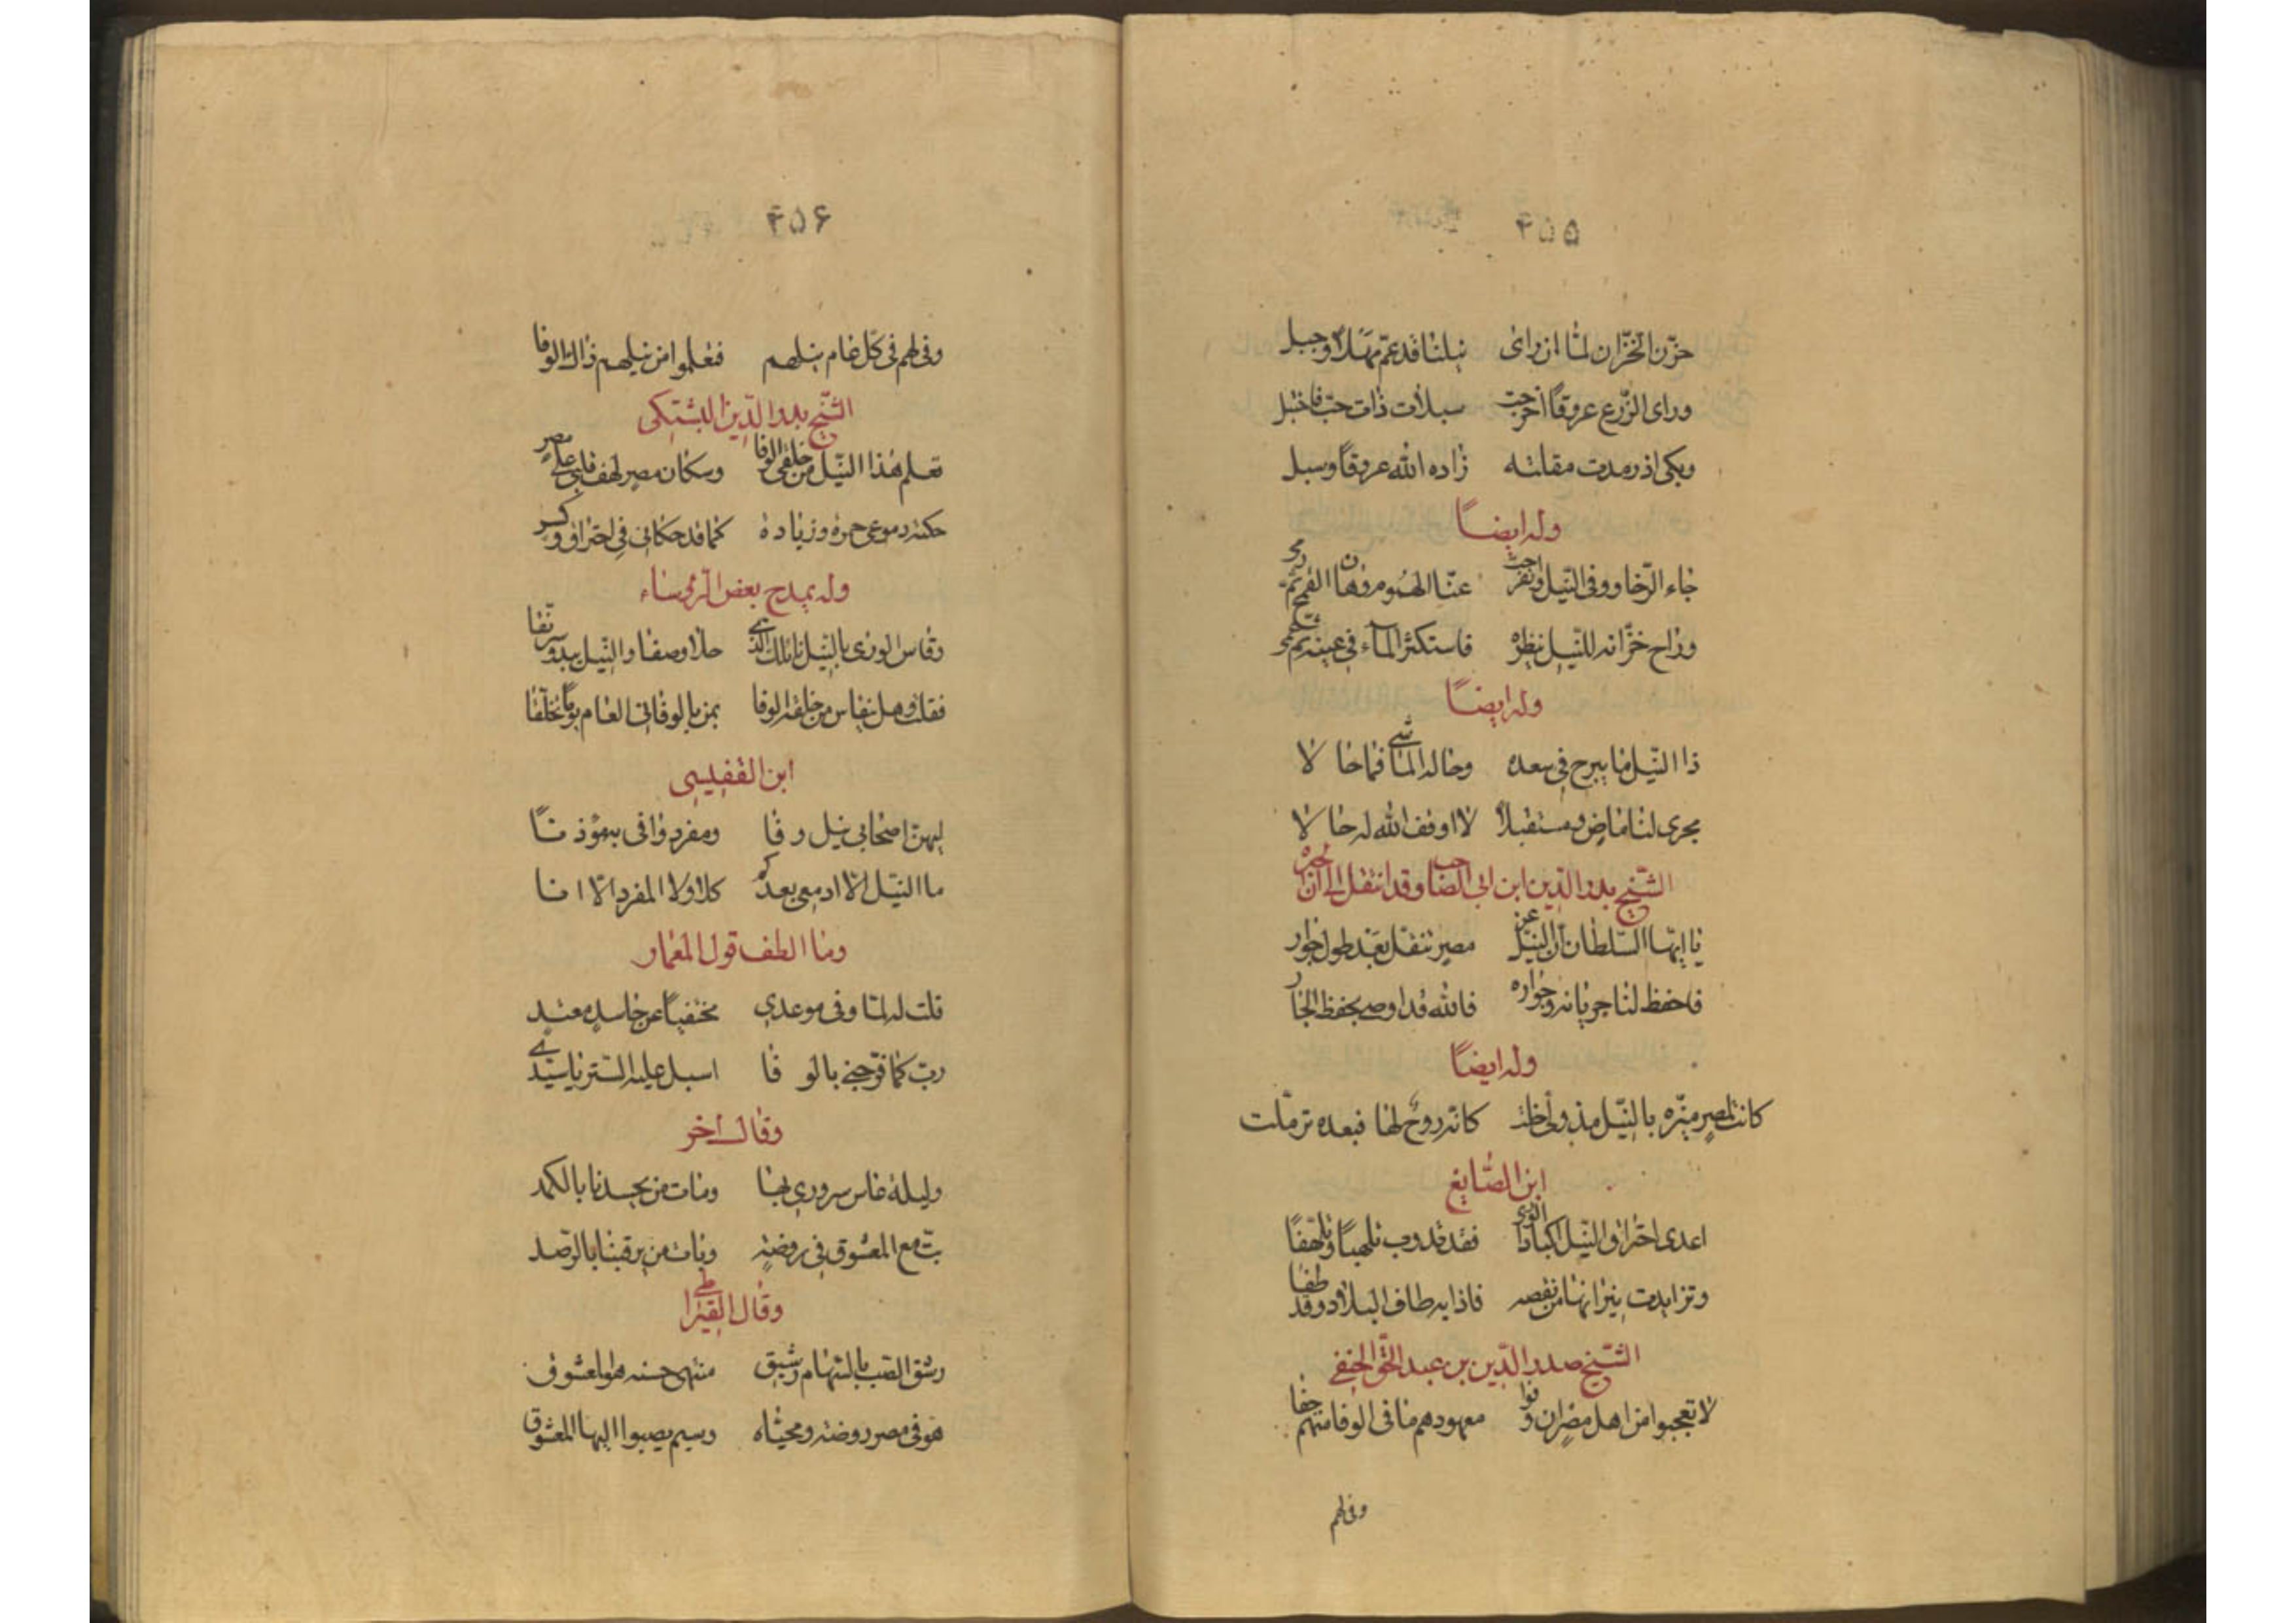 ۴۵۵
حزن الخزان لما ان رای نیلنا قد عم سهلا وجبل
ورای الزرع عروقا اخرجت سبلات ذات حب فاختبل
وبكی اذ رمدت مقلته زاده الله عروقا وسبل
وله ایضا
جاء الرخا ووفی النیل وانفرجت عنا الهموم وهان القمح
وراح خزانه للنیل ینظره فاستكثر الماء فی عینیه
وله ایضا
ذا النیل ما یبرح فی سعده وحاله الماشی فما حالا
یجری لنا ماض ومستقبلا لا اوقف الله له حالا
الشیخ بدر الدین ابن الصاحب وقد انتقل الی
یا ایها السلطان ان النیل عن مصر تنقل بعد طول جوار
فاحفظ لنا جریانه وجواره فالله قد اوصی بحفظ الجار
وله ایضا
كانت لمصر منزه بالنیل مذ ولی خلت كانه روح لها فبعده ترملت
ابن الصایغ
اعدی احتراق النیل اكباد الوری فغدت تذوب تلهبا وتلهفا
وتزایدت نیرانها من نقصه فاذا به طاف البلاد وقد طفا
الشیخ صدر الدین بن عبد الحق الحنفی
لا تعجبوا من اهل مصر ان وفوا معهودهم ما فی الوفا منهم جفا
وفی لهم
۴۵۶
وفی لهم فی كل عام نیلهم فتعلموا من نیلهم ذاك الوفا
الشیخ بدر الدین البشتكی
تعلم هذا النیل من خلقی الوفا وسكان مصر لهف قلبی علی مصر
حكته دموعی حمرة وزیادة كما قد حكانی فی احتراق وكسر
وله یمدح بعض الرؤساء
وقاس الوری بالنیل نائلك الذی حلا وصفا والنیل یبدو مرنقا
فقلت وهل یقاس من خلقه الوفا بمن بالوفا فی العام یوما تخلقا
ابن القفلیسی
لیهن اصحابی نیل وفا ومفرد وافی بموذنا
ما النیل الا ادمعی بعدكم كلا ولا المفرد الا انا
وما الطف قول المعمار
قلت له لما وفی موعدی مختفیا عن حاسد معتد
رب كما فرحتنی بالوفا اسبل علیه الستر یا سیدی
وقال اخر
ولیلة عاش سروری بها ومات من یحسدنا بالكمد
بت مع المعشوق فی روضة وبات من یرقبنا بالرصد
وقال القیراطی
رشق القلب بالسهام رشیق منتهی حسنه هو المعشوق
هو فی مصر روضة ومحیاه وسیم یصبوا الیها المعشوق